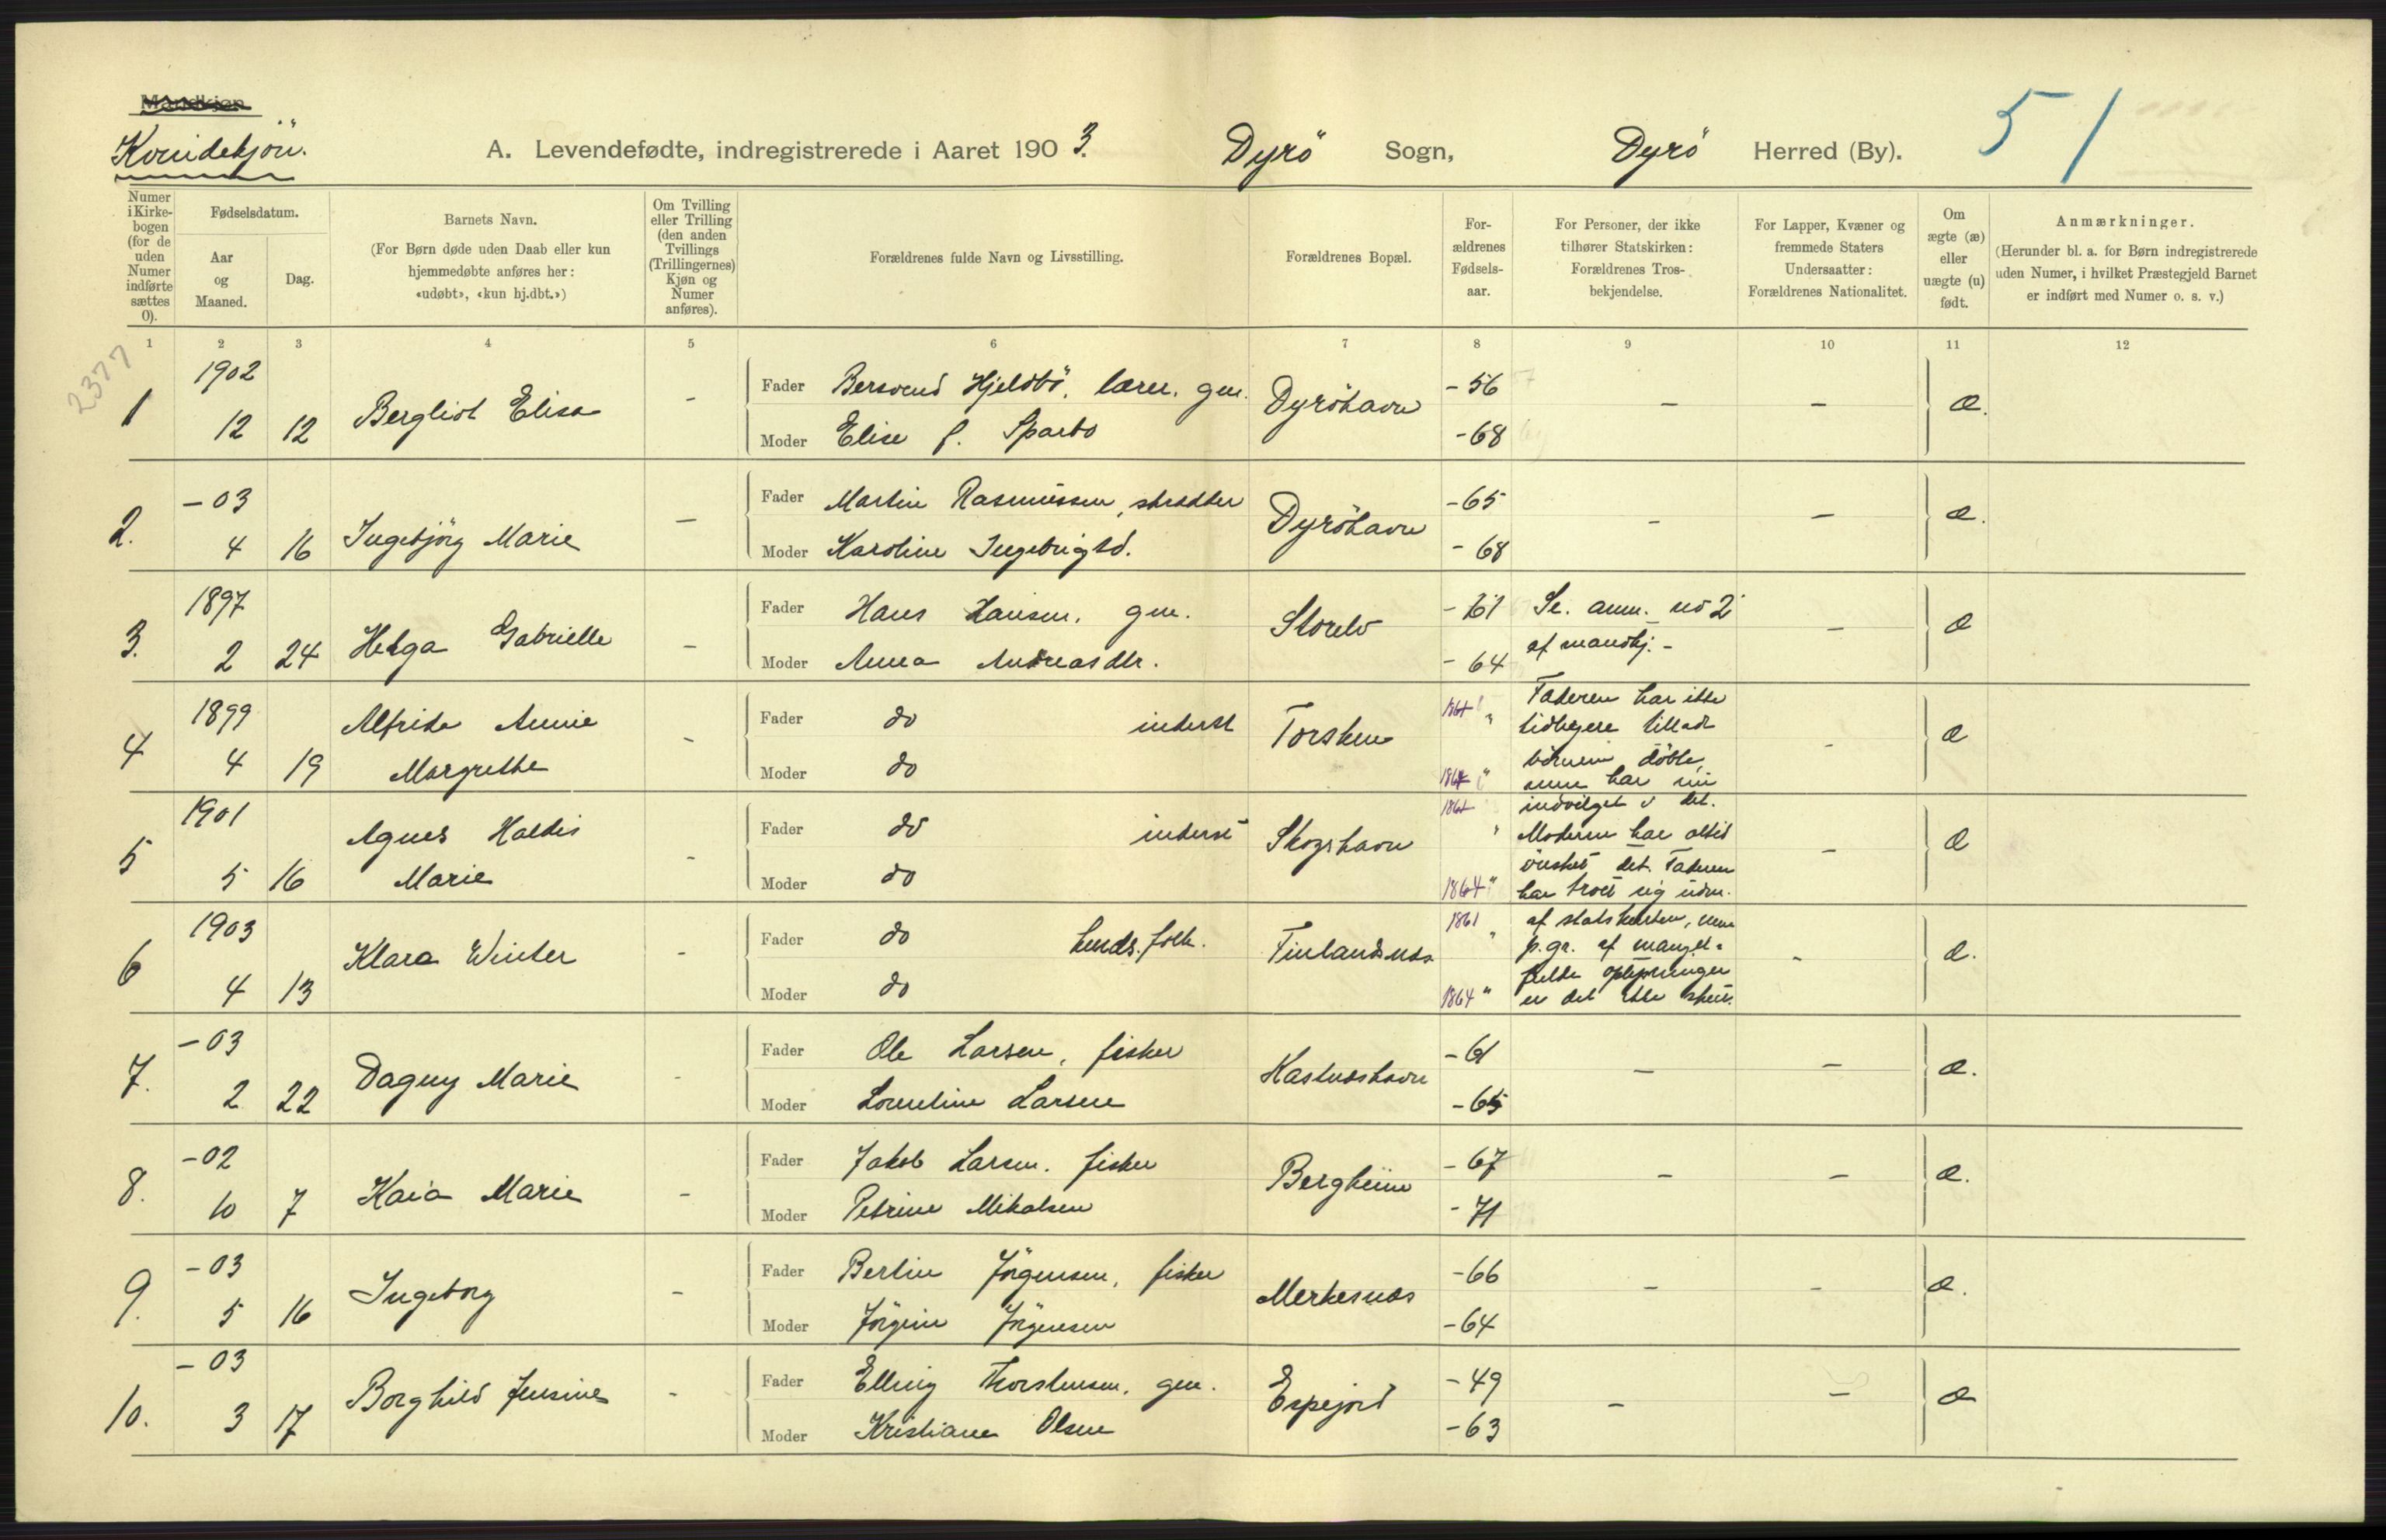 Mandkjøn
Kvindekjön.
A. Levendefødte, indregistrerede i Aaret 1903.
Dyrö Sogn,
Dyrö Herred (By).
51
Numer i Kirke-bogen (for de uden Numer indførte sættes 0).
Fødselsdatum.
Aar og Maaned.
Dag.
Barnets Navn.
(For Børn døde uden Daab eller kun
hjemmedøbte anføres her:
«udøbt», «kun hj.dbt.»)
Om Tvilling eller Trilling (den anden Tvillings (Trillingernes) Kjøn og Numer anføres).
Forældrenes fulde Navn og Livsstilling.
Forældrenes Bopæl.
For-ældrenes Fødsels-aar.
For Personer, der ikke
tilhører Statskirken:
Forældrenes Tros-
bekjendelse.
For Lapper, Kvæner og
fremmede Staters
Undersaatter:
Forældrenes Nationalitet.
Om ægte (æ) eller uægte (u) født.
Anmærkninger.
(Herunder bl. a. for Børn indregistrerede
uden Numer, i hvilket Præstegjeld Barnet
er indført med Numer o. s. v.)
1 2 3 4 5 6 7 8 9 10 11 12
2377
1902 Fader Bersvend Hjeldbö, lærer, gm. -56
1 12 12 Bergliot Elisa - Dyröhavn - - æ.
Moder Elise f. Sparbo -68
-03 Fader Martin Rasmussen, skrædder -65
2. 4 16 Ingebjörg Marie - Dyröhavn - - æ.
Moder Karoline Ingebrigtsd. -68
1897 Fader Hans Hansen, gm. -61 Se. anm. no 2
3. 2 24 Helga Gabrielle - Storelv - æ
Moder Anna Andreasdtr. -64 af mandkj. -
1899 Alfrida Annie Fader do inderst 1861 " Faderen har ikke
4 4 19 Margrethe - Torsken tidligere tilladt - æ
Moder do 1864 " börnene döbte,
men har nu
1901 Agnes Haldis Fader do inderst 1861 " indvilget i det.
5 5 16 Marie - Skogshavn Moderen har altid - æ
önsket det. Faderen
Moder do 1864 " har troet sig udm.
1903 Fader do husds. folk. 1861 " af statskirken, men
6 4 13 Klara Winter - Finlandsnæs p. gr. af mangel- - æ.
fulde oplysninger
Moder do 1864 " er det ikke skeet.
-03 Fader Ole Larsen, fisker -61
7. 2 22 Dagny Marie - Kastneshavn - - æ.
Moder Lorentine Larsen -65
-02 Fader Jakob Larsen. fisker -67
8. 10 7 Kaia Marie - Bergheim - - æ.
Moder Petrine Mikalsen -71
-03 Fader Bertin Jörgensen, fisker -66
9. 5 16 Ingeborg - Merkesnæs - - æ.
Moder Jörgine Jörgensen -64
-03 Fader Elling Thorstensen, gm. -49
10. 3 17 Borghild Jensine - Espejord - - æ
Moder Kristiane Olsen -63